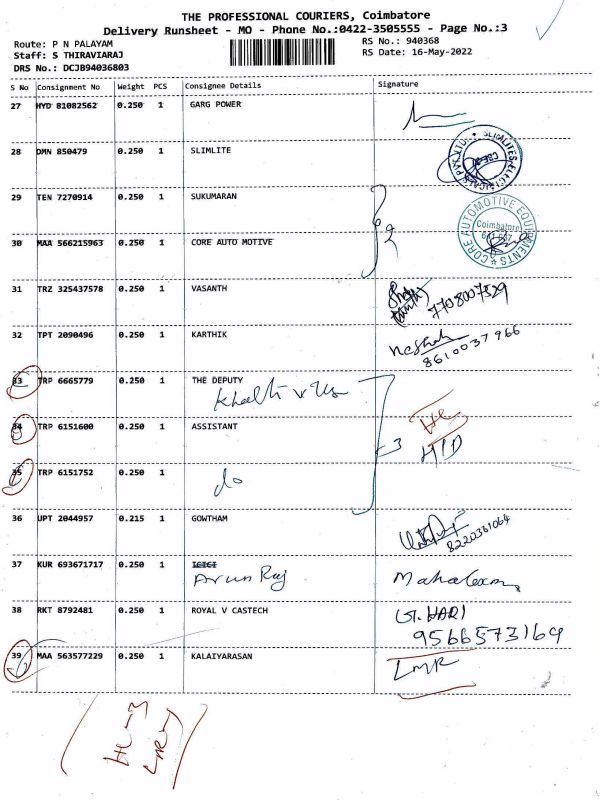 THE PROFESSIONAL COURIERS, Coimbatore
Delivery Runsheet - MO - Phone No.:0422-3505555 - Page No.:3
Route: P N PALAYAM RS No.: 940368
Staff: S THIRAVIARAJ RS Date: 16-May-2022
DRS No.: DCJB94036803
S No Consignment No Weight PCS Consignee Details Signature
27 HYD 81082562 0.250 1 GARG POWER
28 DMN 850479 0.250 1 SLIMLITE
SLIMLITES ELECTRICALS PVT LTD CBE
29 TEN 7270914 0.250 1 SUKUMARAN
2
30 MAA 566215963 0.250 1 CORE AUTO MOTIVE
CORE AUTOMOTIVE EQUIPMENTS Coimbatore
31 TRZ 325437578 0.250 1 VASANTH 7708007529
32 TPT 2090496 0.250 1 KARTHIK
8610037966
33 TRP 6665779 0.250 1 THE DEPUTY
34 TRP 6151600 0.250 1 ASSISTANT
3 H/D
35 TRP 6151752 0.250 1
do
36 UPT 2044957 0.215 1 GOWTHAM
8220361064
37 KUR 693671717 0.250 1 ICICI
Arun Raj
38 RKT 8792481 0.250 1 ROYAL V CASTECH G. HARI
9566573169
39 MAA 563577229 0.250 1 KALAIYARASAN LMR